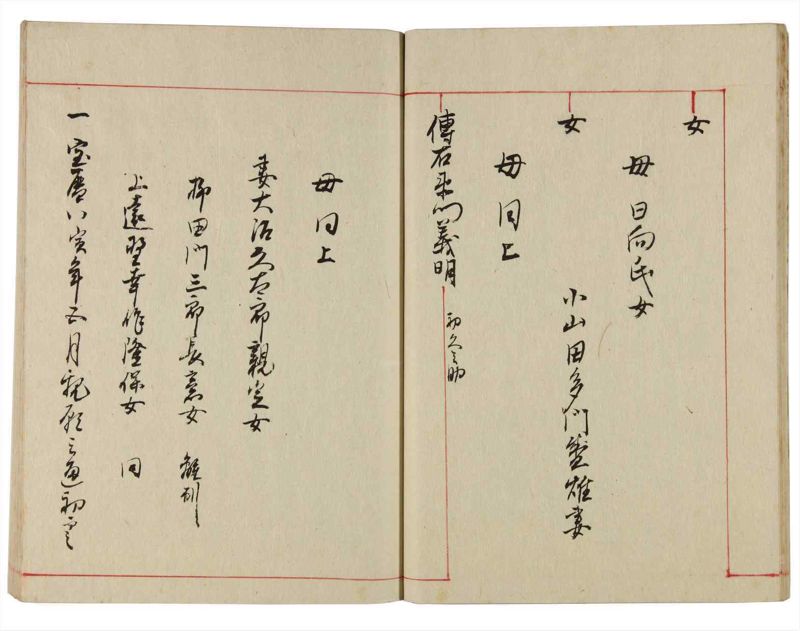 女
母 日向氏女
小山田多門盛雄妻
女
母 同上
傳右衛門義明 初久之助
母 同上
妻大沼久太郎親定女
柳田門三郎長意女 離別
上遠野幸作隆保女 同
一 宝暦八寅年五月親願之通初而